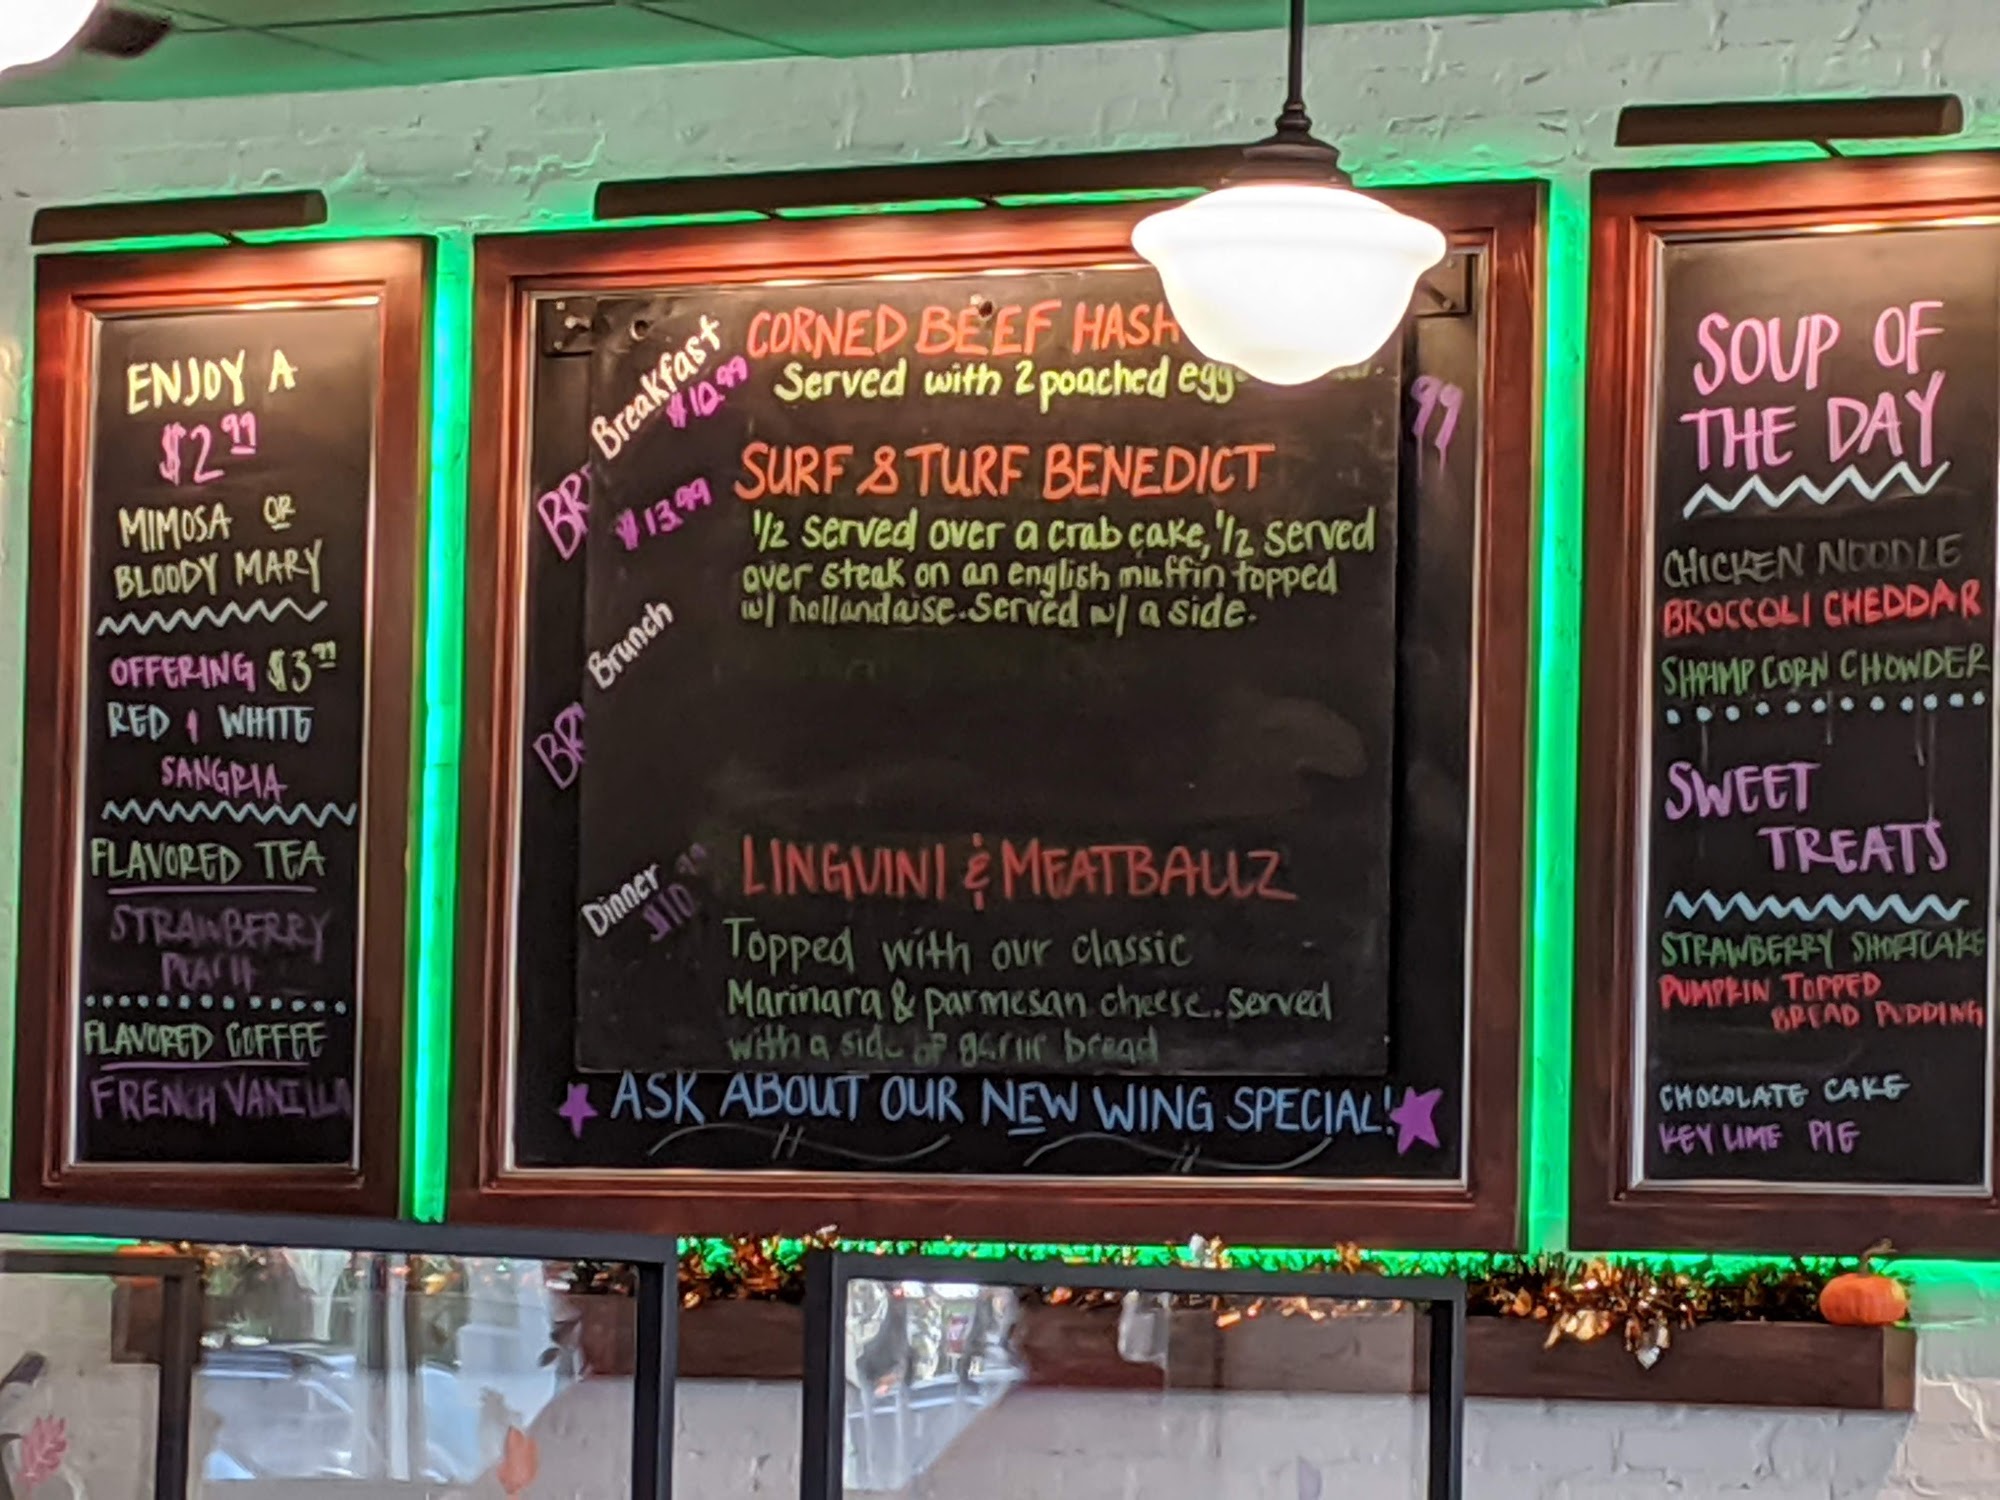 ENJOY A
$2.99
MIMOSA OR
BLOODY MARY
OFFERING $3.99
RED & WHITE
SANGRIA
FLAVORED TEA
STRAWBERRY
PEACH
FLAVORED COFFEE
FRENCH VANILLA
Breakfast
$10.99
CORNED BEEF HASH
Served with 2 poached egg
99
BR
$13.99
SURF & TURF BENEDICT
1/2 served over a crab cake, 1/2 served
over steak on an english muffin topped
w/ hollandaise. Served w/ a side.
Brunch
BR
Dinner
$10.99
LINGUINI & MEATBALLZ
Topped with our classic
Marinara & parmesan cheese. served
with a side of garlic bread
ASK ABOUT OUR NEW WING SPECIAL!
SOUP OF
THE DAY
CHICKEN NOODLE
BROCCOLI CHEDDAR
SHRIMP CORN CHOWDER
SWEET
TREATS
STRAWBERRY SHORTCAKE
PUMPKIN TOPPED
BREAD PUDDING
CHOCOLATE CAKE
KEY LIME PIE